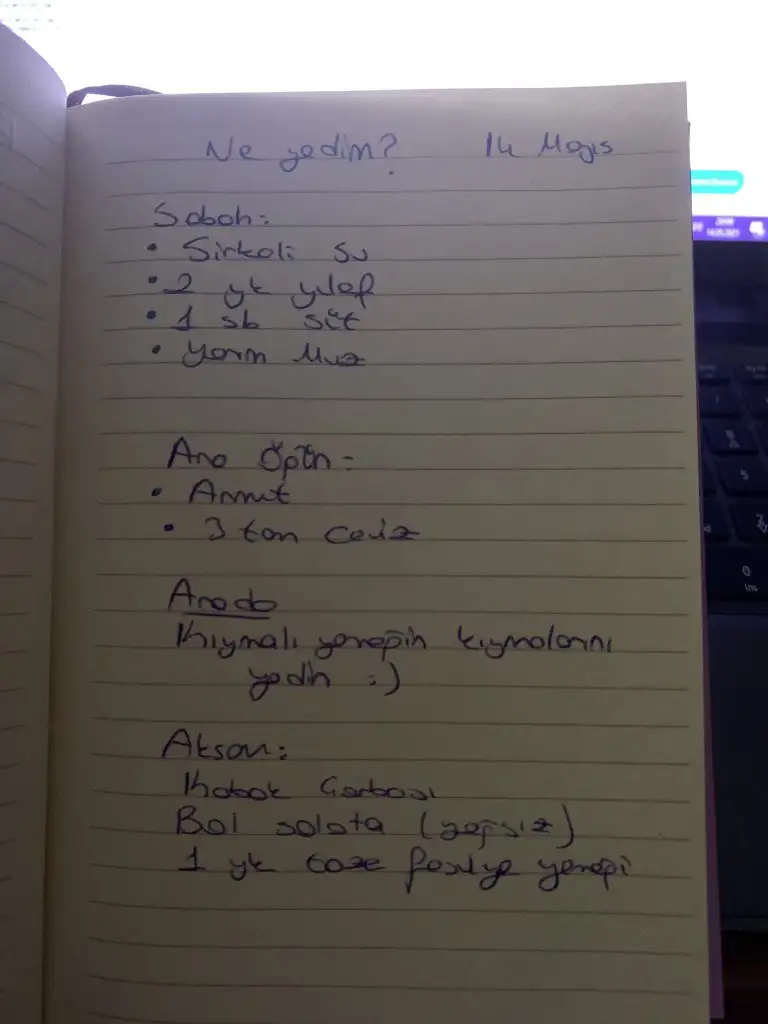 Ne yedim? 14 Mayıs
Sabah:
• Sirkeli su
• 2 yk yulaf
• 1 sb süt
• Yarım Muz
Ara Öğün:
• Armut
• 3 tan ceviz
Arada
Kıymalı yemeğin kıymalarını
yedim :)
Akşam:
Kabak Çorbası
Bol salata (yağsız)
1 yk taze fasulye yemeği
0
Ins